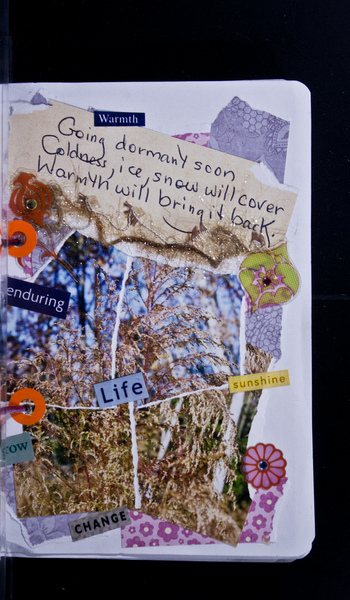 Warmth
Going dormant soon
Coldness, ice, snow will cover
Warmth will bring it back.
enduring
Life
sunshine
CHANGE